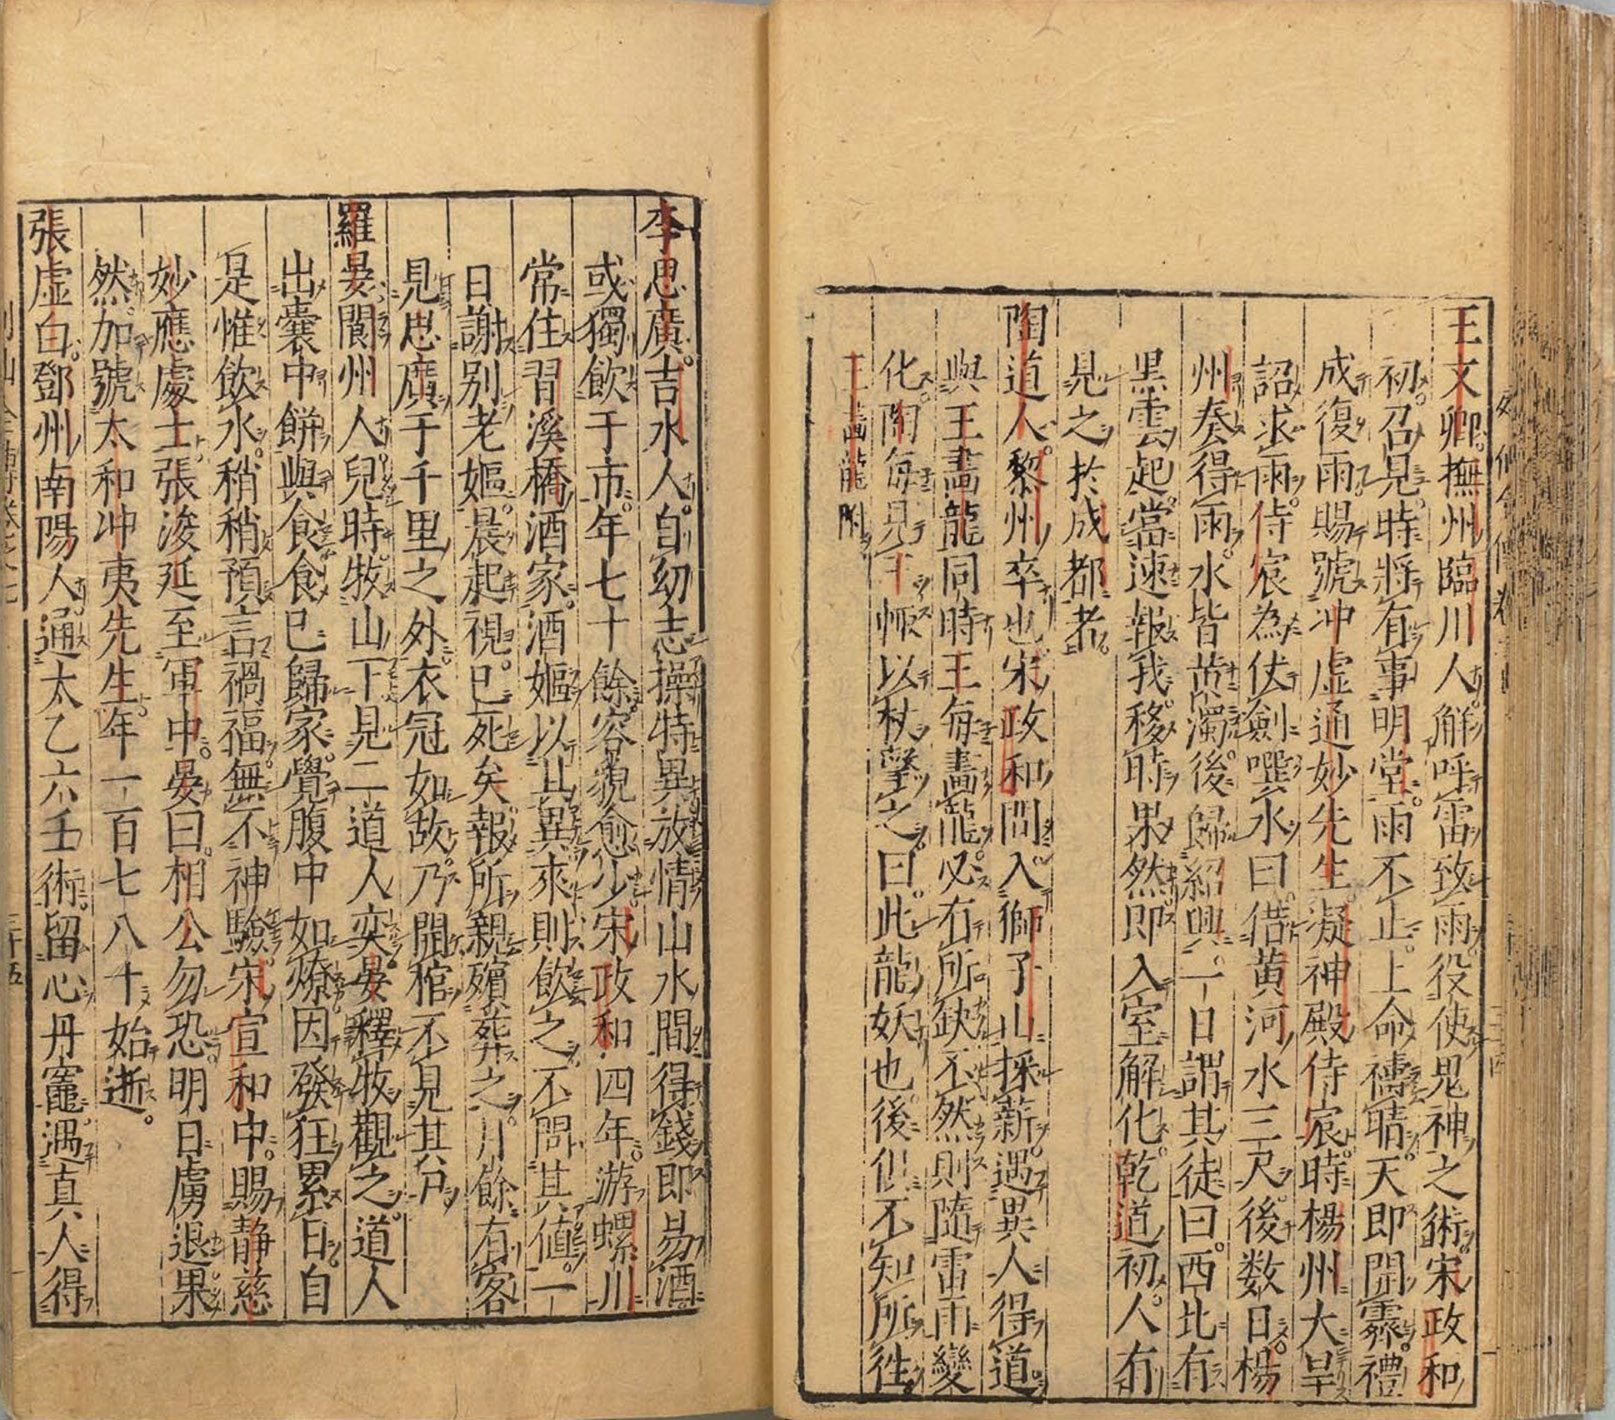 王文卿。撫州臨川人。解呼雷致雨。役使鬼神之術。宋政和
初。召見。時將有事明堂。雨不止。上命禱晴。天即開霽。禮
成復雨。賜號冲虛通妙先生。凝神殿侍宸。時楊州大旱
詔求雨。侍宸為仗劍噀水曰。借黄河水三尺。後数日。楊
州奏得雨。水皆黄濁。後歸紹興。一日謂其徒曰。西北有
黒雲起。當速報我。移時果然。即入室解化。乾道初。人有
見之於成都者。
陶道人。黎州卒也。宋政和間。入獅子山採薪。遇異人得道
與王畵龍同時。王每畵龍。必有所缺。不然則隨雷雨變
化。陶每見于 以杖擊之。曰。此龍妖也。後但不知所徃
王畵龍附
李思廣。吉水人。自幼志操特異。放情山水間。得錢即易酒
或獨飲于市。年七十餘。容貌愈少。宋政和四年。游螺川
常住習溪橋酒家。酒嫗以其異。來則飲之。不問其值。一
日謝别老嫗。晨起視。已死矣。報所親殯葬之。月餘有客
見思廣于千里之外。衣冠如故。乃開棺。不見其尸
羅晏。閬州人。兒時牧山下。見二道人奕。晏釋牧觀之。道人
出囊中餅與食。食已歸家。覺腹中如燎。因發狂累日。自
是惟飲水。稍稍預言禍福。無不神驗。宋宣和中。賜靜慈
妙應處士。張浚延至軍中。晏曰。相公勿恐。明日虜退。果
然。加號太和冲夷先生。年一百七八十。始逝。
張虛白。鄧州南陽人。通太乙六壬術。留心丹竈。遇真人得
二十五